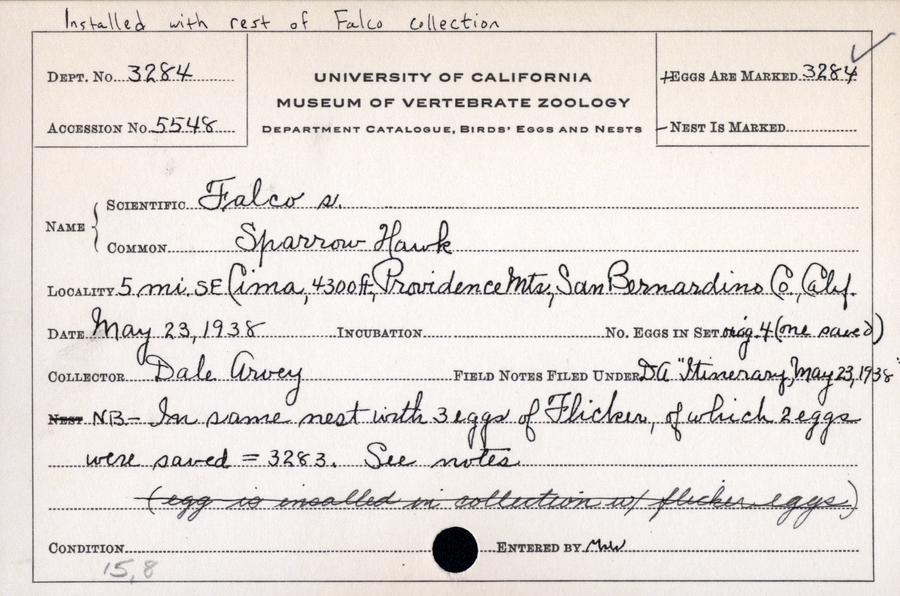 Installed with rest of Falco collection
DEPT. NO. 3284
ACCESSION NO. 5548
UNIVERSITY OF CALIFORNIA
MUSEUM OF VERTEBRATE ZOOLOGY
DEPARTMENT CATALOGUE, BIRDS' EGGS AND NESTS
EGGS ARE MARKED 3284
NEST IS MARKED
NAME
SCIENTIFIC Falco s.
COMMON Sparrow Hawk
LOCALITY 5 mi. SE Cima, 4300 ft, Providence Mts, San Bernardino Co., Calif.
DATE May 23, 1938 INCUBATION NO. EGGS IN SET orig. 4 (one saved)
COLLECTOR Dale Arvey FIELD NOTES FILED UNDER DA "Itinerary, May 23, 1938"
NEST NB— In same nest with 3 eggs of Flicker, of which 2 eggs
were saved = 3283. See notes
(egg is insalled in collection w/ flicker eggs)
CONDITION ENTERED BY
15,8